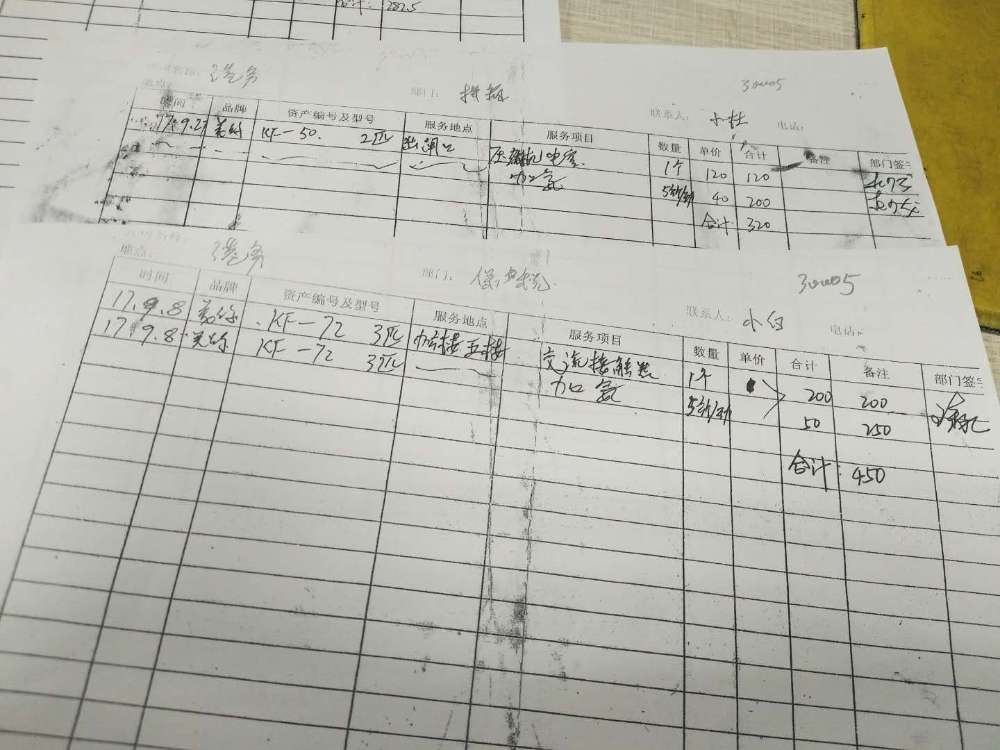 合计: 282.5
部门:
30005
联系人: 小杜 电话:
时间 品牌 资产编号及型号 服务地点 服务项目 数量 单价 合计 备注 部门签字
17.9.2 美的 KF-50. 2匹 出闸口 压缩机电容. 1个 120 120
加氟 40 200
合计 320
地点: 港务 部门: 30005
联系人: 小白 电话:
时间 品牌 资产编号及型号 服务地点 服务项目 数量 单价 合计 备注 部门签字
17.9.8 美的 KF-72 3匹 交流接触器 1个 200 200
17.9.8 美的 KF-72 3匹 加氟 50 250
合计: 450